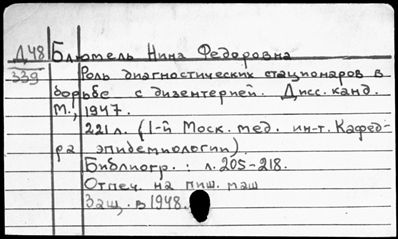 Д48 Блютель Нина Федоровна
339 Роль диагностических стационаров в
борьбе с дизентерией. Дисс. канд.
М., 1947.
221 л. (I-й Моск. мед. ин-т. Кафед-
ра эпидемиологии).
Библиогр.: л. 205-218.
Отпеч. на пиш. маш
Защ. в 1948.